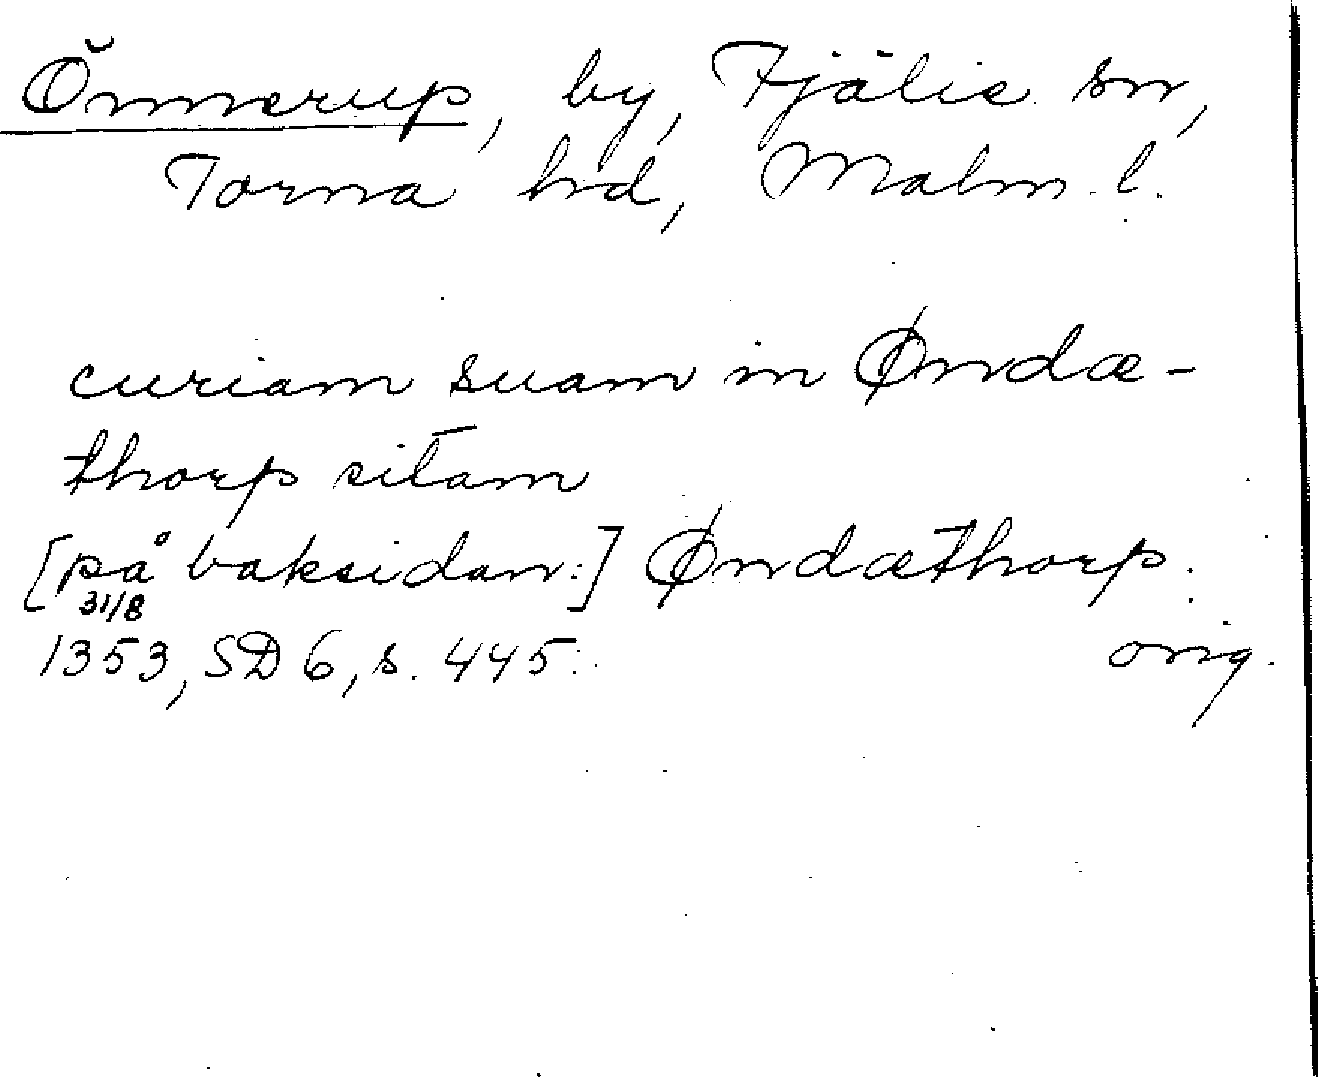 Önnerup, by, Fjälie sn,
Torna hd, Malm. l.
curiam suam in Øndæ-
thorp sitam
[på baksidan:] Øndæthorp.
31/8
1353, SD 6, s. 445. orig.